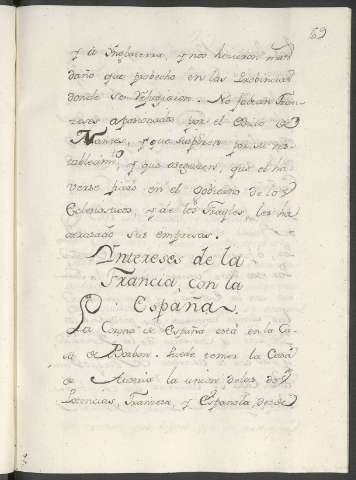 69
y la Inglaterra, y nos hicieron mas
daño que probecho en las Provincias
donde se refugiaron. No faltan Fran
zeses apasionados por el Edicto de
Nantes, y que suspiren por su res
tablecimto, y que aseguren, que el ha
verse fiado en el Govierno de los
Eclesiasticos, y de los Frayles, les ha
atrasado sus empresas.
Intereses de la
Francia, con la
España.
La Corona de España está en la Ca
sa de Borbon. Puede temer la Casa
de Austria la union de las dos
Potencias, Francesa, y Española, desde